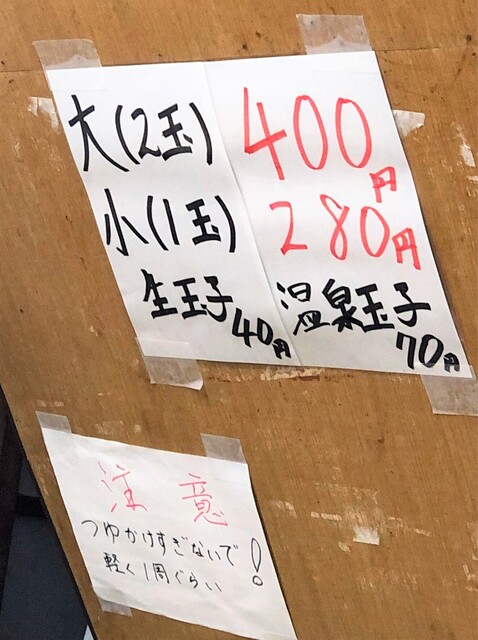 大(2玉) 400円
小(1玉) 280円
生玉子 40円 温泉玉子 70円
注意
つゆかけすぎないで
軽く1周ぐらい!